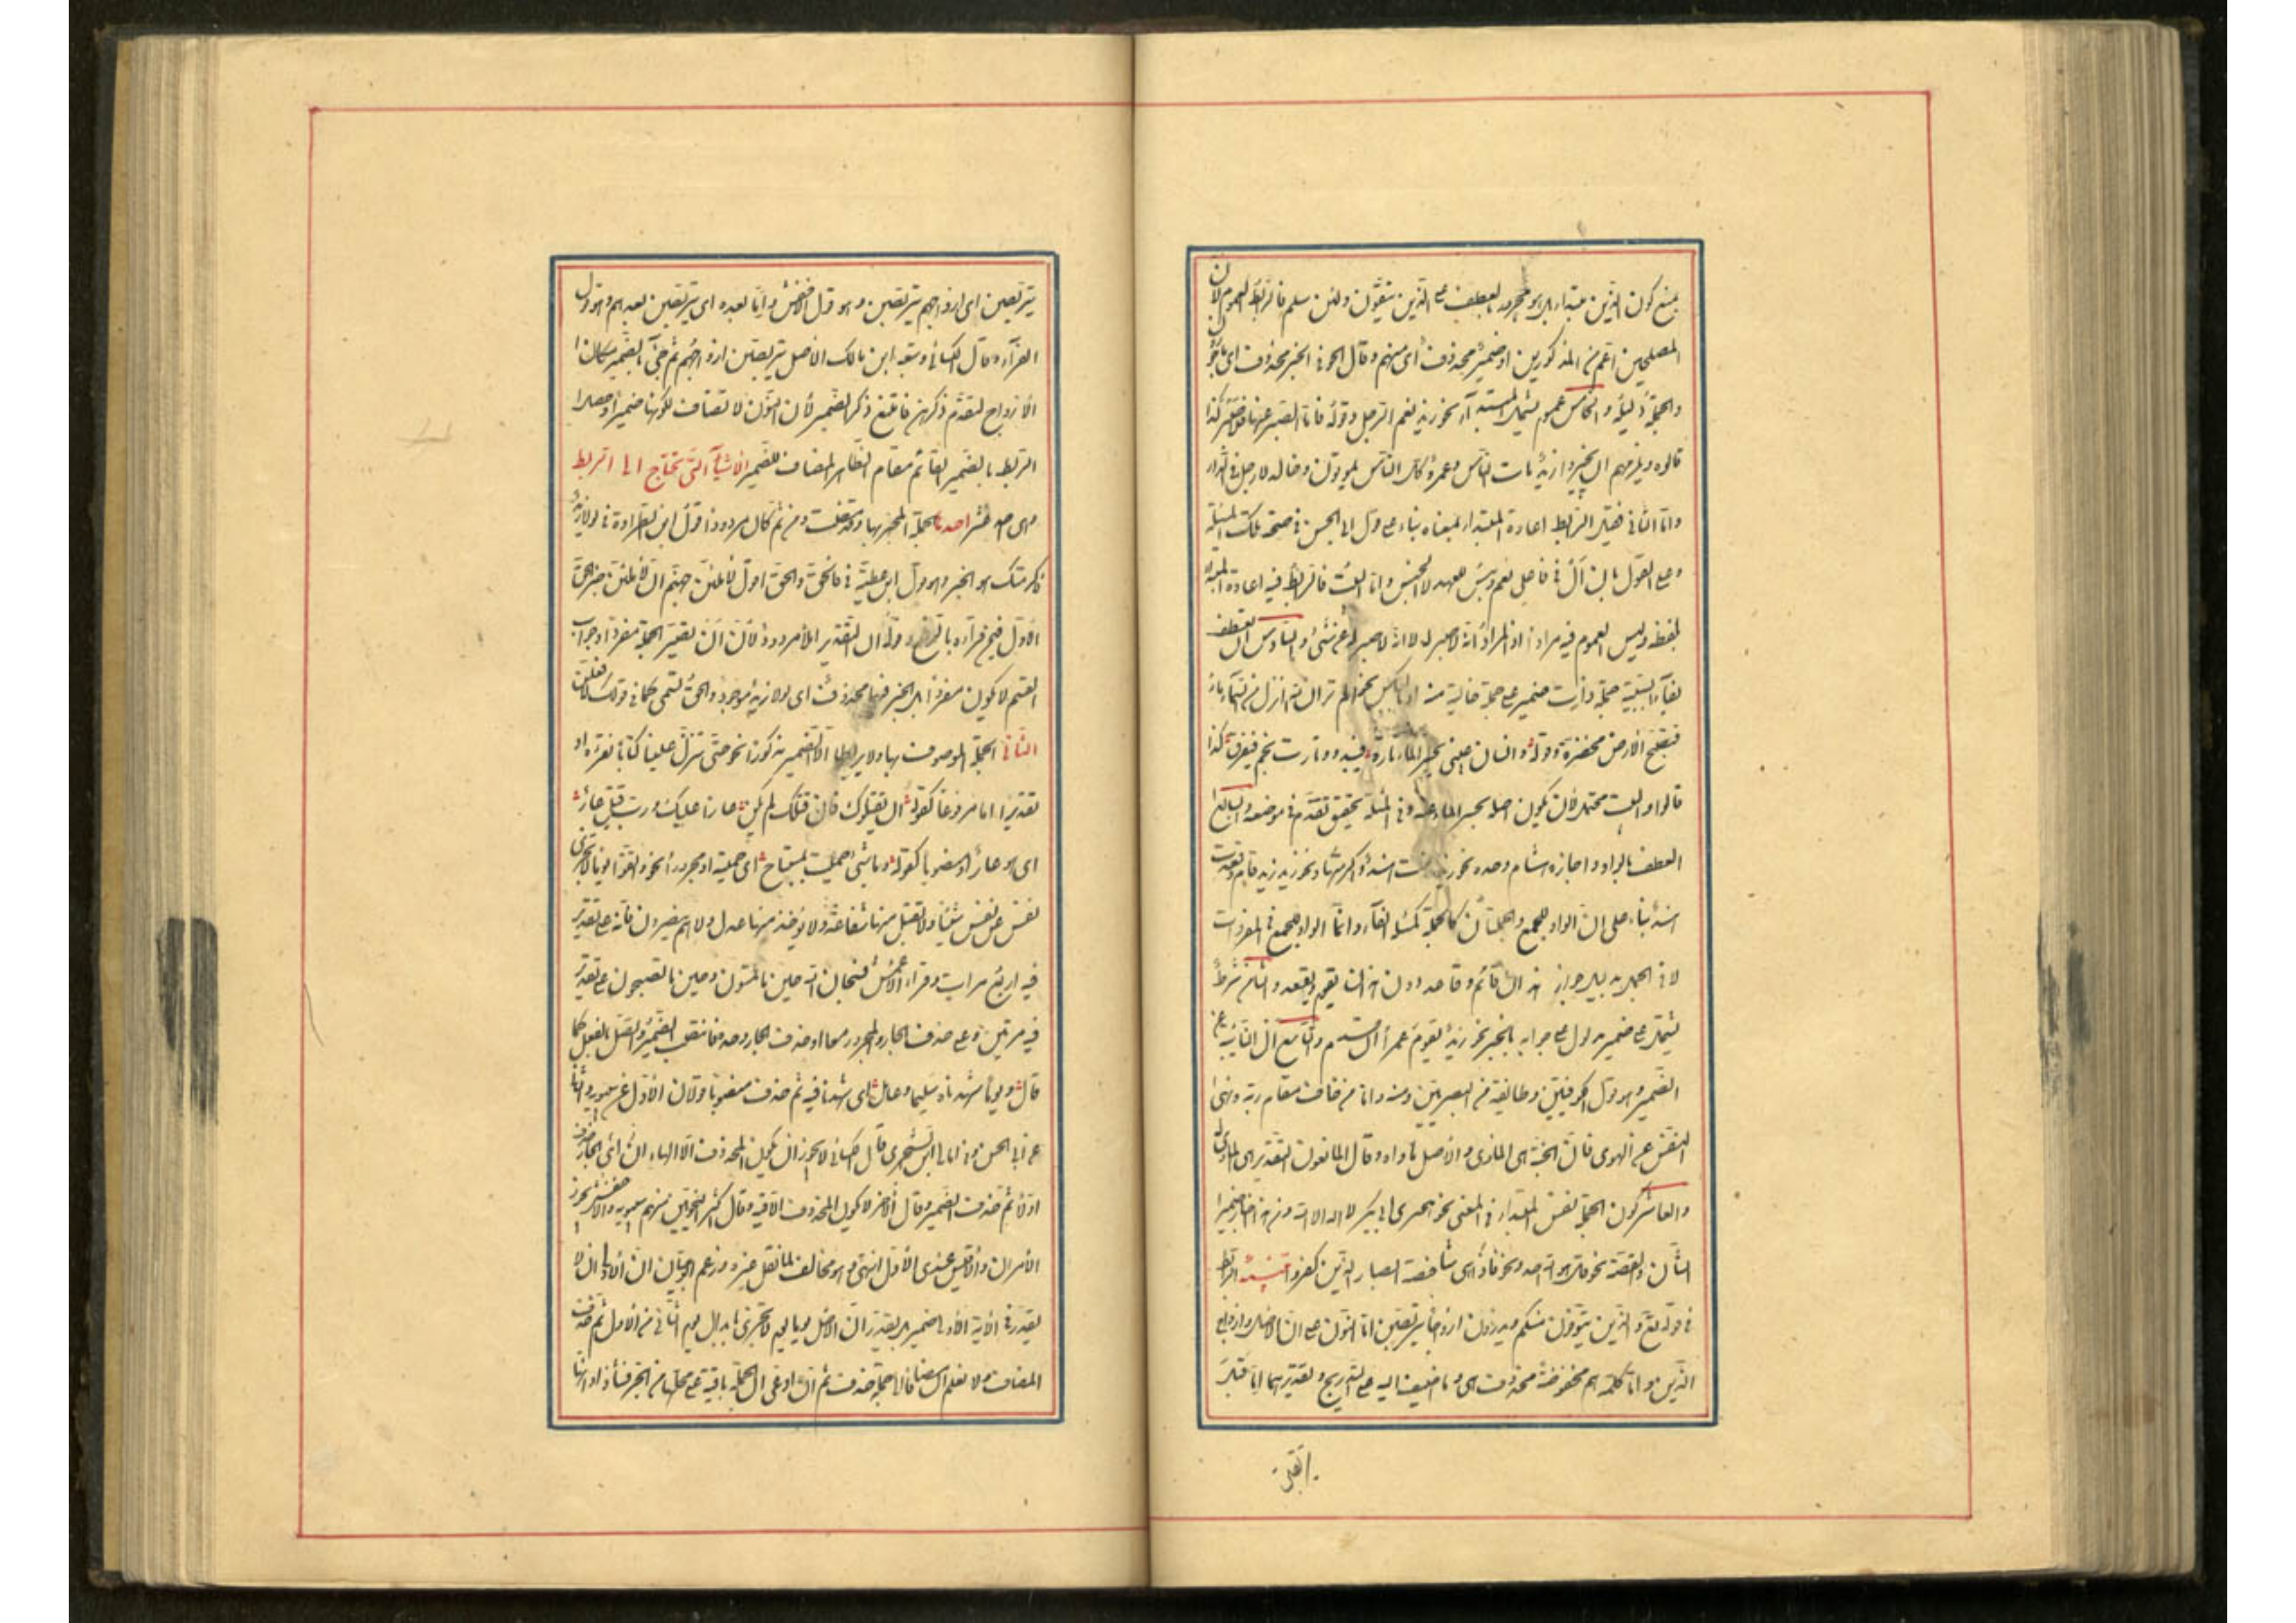 يمنع كون الذين مبتدأ بل هو مجرور بالعطف على الذين يتقون ولئن سلم فالربط العموم لان
المصلحين اعم من المذكورين او ضمير محذوف اى منهم وقال الحوفى الخبر محذوف اى مأجورون
والجملة دليله والخامس عموم يشمل المبتدأ نحو زيد نعم الرجل وقوله فاما الصبر عنها فلا صبرا كذا
قالوه ويلزمهم ان يجيزوا زيد مات الناس وعمرو كل الناس يموتون وخالد لا رجل فى الدار
واما الثانى فقيل الرابط اعادة المبتدأ بمعناه بناء على قول ابى الحسن فى صحة تلك المسئلة
وعلى القول بان ال فى فاعلى نعم وبئس للعهد لا للجنس واما البيت فالرابط فيه اعادة المبتدا
بلفظه وليس العموم فيه مرادا اذ المراد انه لا صبر له لا انه لا صبر له عن شئ والسادس ان يعطف
بفاء السببية جملة ذات ضمير على جملة خالية منه او بالعكس نحو الم تر ان الله انزل من السماء ماء
فتصبح الارض مخضرة وقوله وانسان عينى يحسر الماء تارة فيبدو وتارات يجم فيغرق كذا
قالوا والبيت محتمل لان يكون اصله يحسر الماء عنه وفى المسئلة تحقيق تقدم فى موضعه والسابع
العطف بالواو واجازه هشام وحده نحو زيد قامت هند واكرمتها ونحو زيد قام وقعدت
هند بناء على ان الواو للجمع والجملتان كالجملة كمسئلة الفاء وانما الواو للجمع فى المفردات
لا فى الجمل بدليل جواز هذان قائم وقاعد دون هذان يقوم ويقعد والثامن شرط
يشتمل على ضمير مدلول على جوابه بالخبر نحو زيد يقوم عمرو ان قام والتاسع ال النائبة عن
الضمير وهو قول الكوفيين وطائفة من البصريين ومنه واما من خاف مقام ربه ونهى
النفس عن الهوى فان الجنة هى المأوى والاصل مأواه وقال المانعون التقدير هى المأوى له
والعاشر كون الجملة نفس المبتدأ فى المعنى نحو هجيرى ابى بكر لا اله الا الله ومن هذا اخبار ضمير
الشأن والقصة نحو قل هو الله احد ونحو فاذا هى شاخصة ابصار الذين كفروا تنبيه الرابط
فى قوله تعالى والذين يتوفون منكم ويذرون ازواجا يتربصن اما النون على ان الاصل وازواج
الذين واما كلمة هم مخفوضة محذوفة هى وما اضيف اليه على التدريج وتقديرهما اما قبل
يتربصن اى ازواجهم يتربصن وهو قول الاخفش واما بعده اى يتربصن بعدهم وهو قول
الفراء وقال الكسائى وتبعه ابن مالك الاصل يتربصن ازواجهم ثم جئ بالضمير مكان
الازواج لتقدم ذكرهن فامتنع ذكر الضمير لان النون لا تضاف لكونها ضميرا وحصل
الربط بالضمير القائم مقام الظاهر المضاف للضمير الاشياء التى تحتاج الى الربط
وهى احد عشر احدها الجملة المخبر بها وقد مضت ومن ثم كان مردودا قول ابن الطراوة فى لولا زيد
لاكرمتك هو الخبر وهو قول ابن عطية فى فالحق والحق اقول لاملئن جهنم ان لاملئن خبر الحق
الاول فيمن قرأه بالرفع وقوله ان التقدير ان املأ مردود لان ان تصير الجملة مفردا وجواب
القسم لا يكون مفردا بل الخبر فيهما محذوف اى لولا زيد موجود والحق قسمى كما فى قولك لعمرك لافعلن
الثانى الجملة الموصوف بها ولا يربطها الا الضمير مذكورا نحو حتى تنزل علينا كتابا نقرؤه او
تقديرا اما مرفوعا كقوله ان يقتلوك فان قتلك لم يكن عارا عليك ورب قتل عار
اى هو عار او منصوبا كقوله وما شئ حميت بمستباح اى حميته او مجرورا نحو واتقوا يوما لا تجزى
نفس عن نفس شيئا ولا تقبل منها شفاعة ولا يؤخذ منها عدل ولا هم ينصرون فانه على تقدير
فيه اربع مرات وقراءة الاعمش فسبحان الله حينا تمسون وحينا تصبحون على تقدير
فيه مرتين وهل حذف الجار والمجرور معا او حذف الجار وحده فانتصب الضمير واتصل بالفعل كما
قال ويوما شهدناه سليما وعامرا اى شهدنا فيه ثم حذف منصوبا قولان الاول عن سيبويه والثانى
عن ابى الحسن وفى امالى ابن الشجرى قال الكسائى لا يجوز ان يكون المحذوف الا الهاء اى ان الجار حذف
اولا ثم حذف الضمير وقال آخر لا يكون المحذوف الا فيه وقال اكثر النحويين منهم سيبويه والاخفش يجوز
الامران والاقيس عندى الاول انتهى وهو مخالف لما نقل غيره وزعم ابو حيان ان الاولى ان لا
يقدر فى الآية الاولى ضمير بل يقدر ان الاصل يوما يوم لا تجزى بابدال يوم الثانى من الاول ثم حذف
المضاف ولا نعلم ان مضافا الى جملة حذف ثم ان ادعى ان الجملة باقية على محلها من الجر فشاذ او انها
اتقى